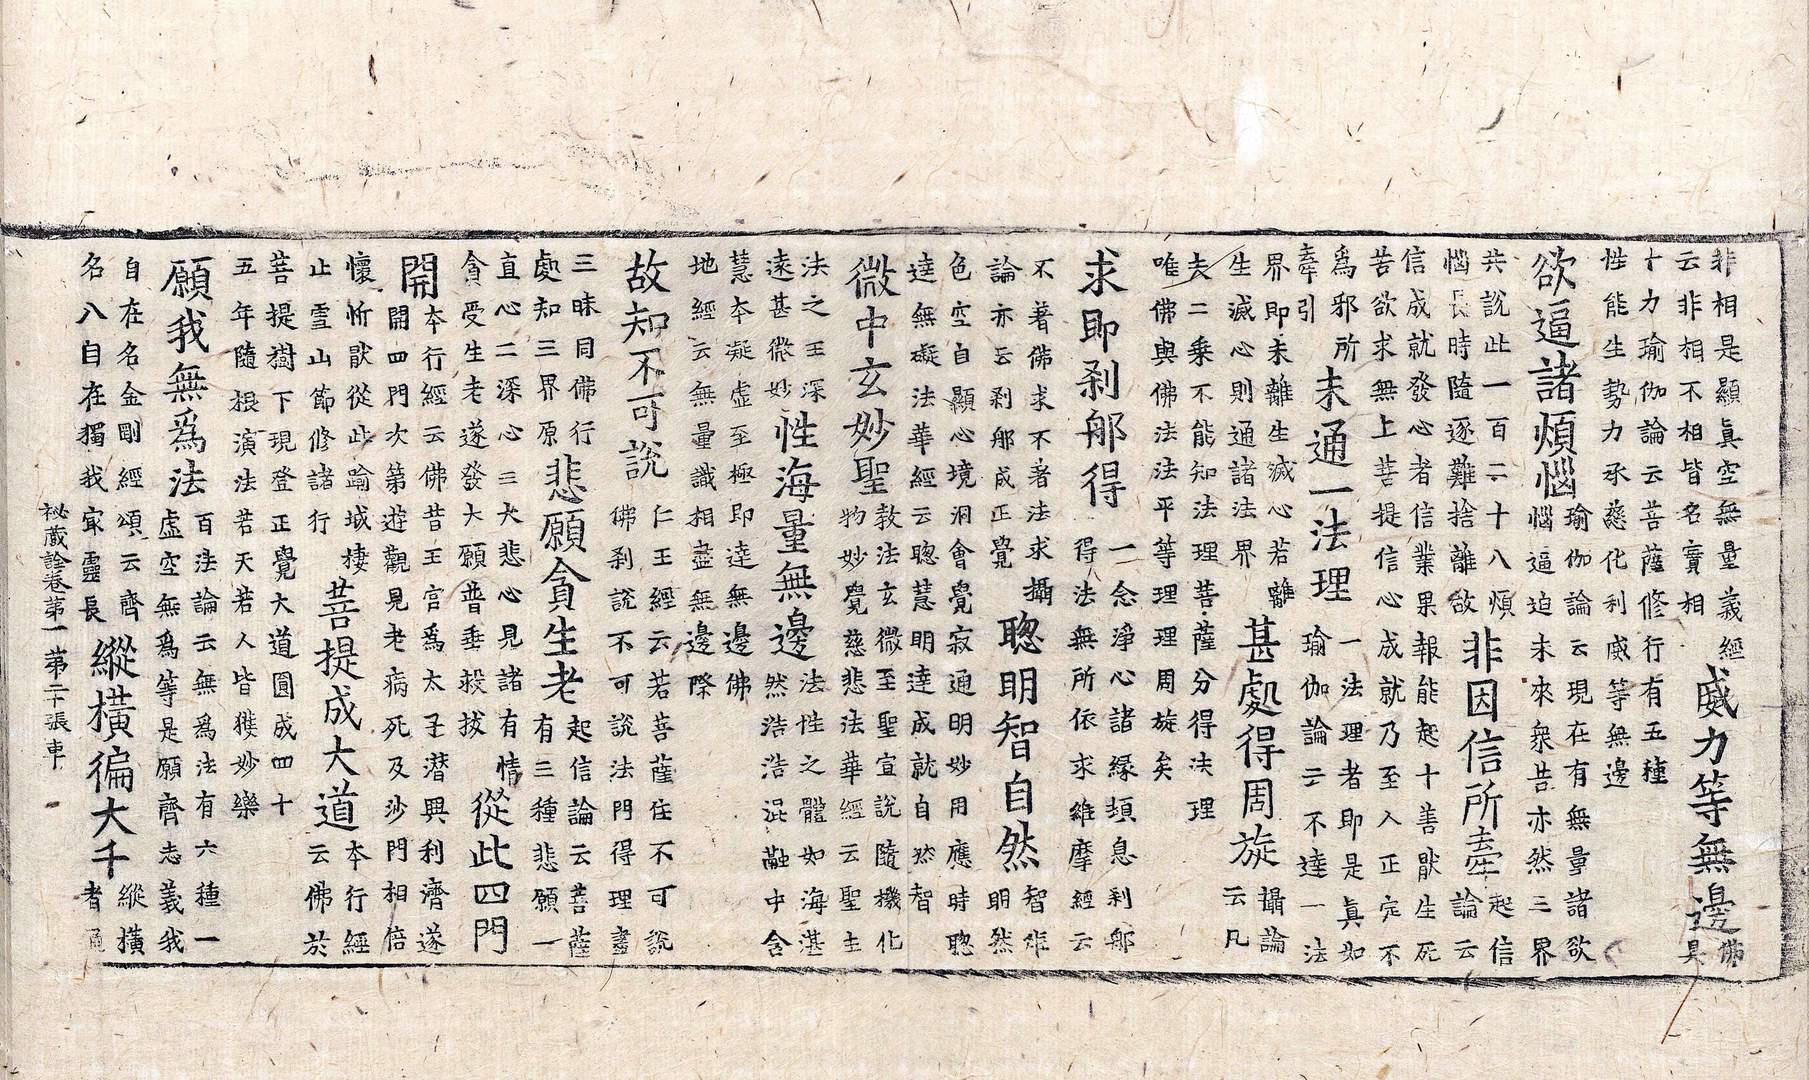 非相是顯真空無量義經
云非相不相皆名實相
威力等無邊
佛
具
十力瑜伽論云菩薩修行有五種
性能生勢力承慈化利威等無邊
欲逼諸煩惱
瑜伽論云現在有無量諸欲
惱逼迫未來衆苦亦然三界
共說此一百二十八煩
惱長時隨逐難捨離故
非因信所牽
起信
論云
信成就發心者信業果報能起十善猒生死
苦欲求無上菩提信心成就乃至入正定不
為邪所
牽引
未通一法理
一法理者即是真如
瑜伽論云不達一法
界即未離生滅心若離
生滅心則通諸法界
甚處得周旋
攝論
云凡
夫二乘不能知法理菩薩分得法理
唯佛與佛法法平等理理周旋矣
求即剎那得
一念淨心諸緣頓息剎那
得法無所依求維摩經云
不著佛求不著法求攝
論亦云剎那成正覺
聰明智自然
智非
明然
色空自顯心境洞會覺寂通明妙用應時聰
達無礙法華經云聰慧明達成就自然智
微中玄妙聖
教法玄微至聖宣說隨機化
物妙覺慈悲法華經云聖主
法之王深
遠甚微妙
性海量無邊
法性之體如海湛
然浩浩混融中含
慧本凝虛至極即達無邊佛
地經云無量識相盡無邊際
故知不可說
仁王經云若菩薩住不可說
佛剎說不可說法門得理盡
三昧同佛行
處知三界原
悲願貪生老
起信論云菩薩
有三種悲願一
直心二深心三大悲心見諸有情
貪受生老遂發大願普垂救拔
從此四門
開
本行經云佛昔王宮為太子潛興利濟遂
開四門次第遊觀見老病死及沙門相倍
懷忻猒從此踰城棲
止雪山節修諸行
菩提成大道
本行經
云佛於
菩提樹下現登正覺大道圓成四十
五年隨根演法若天若人皆獲妙樂
願我無為法
百法論云無為法有六種一
虛空無為等是願齊志義我
自在名金剛經頌云齊
名八自在獨我寂靈長
縱橫徧大千
縱橫
者通
秘藏詮卷第一第二十張車